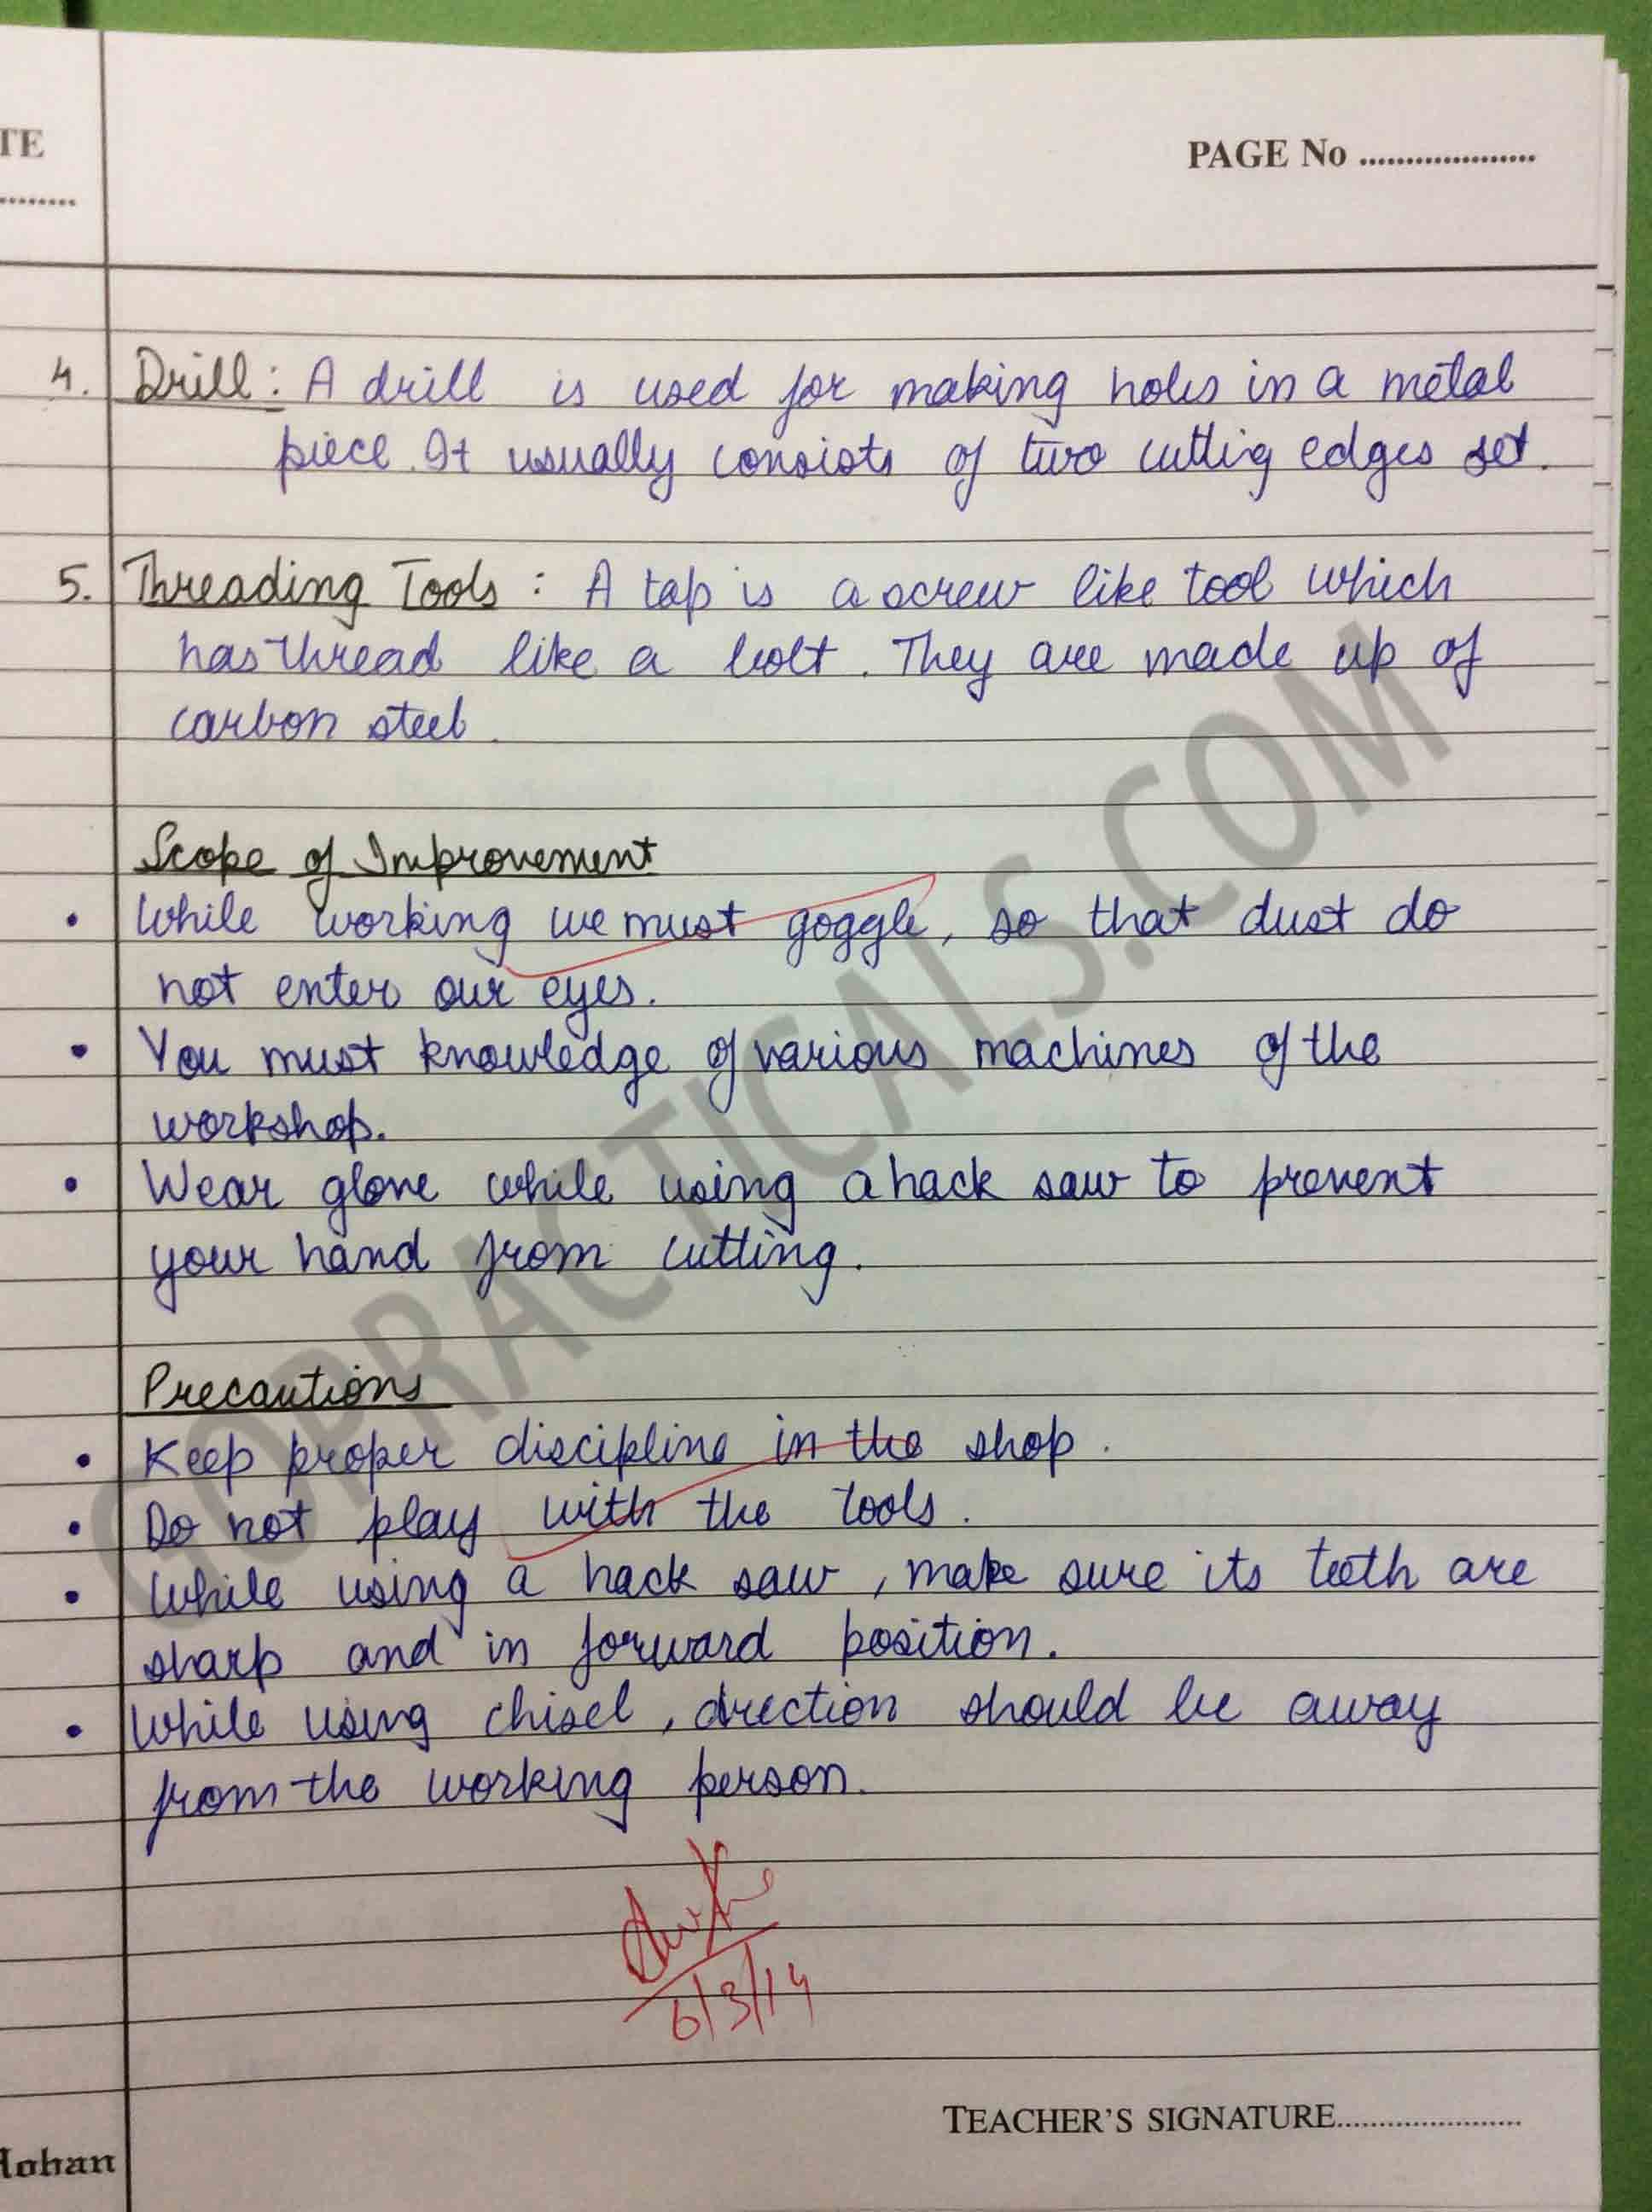 TE
PAGE No ...................
........
4. Drill : A drill is used for making holes in a metal
piece. It usually consists of two cutting edges set.
5. Threading Tools : A tap is a screw like tool which
has thread like a bolt. They are made up of
carbon steel.
Scope of Improvement
• While working we must goggle, so that dust do
not enter our eyes.
• You must knowledge of various machines of the
workshop.
• Wear glove while using a hack saw to prevent
your hand from cutting.
Precautions
• Keep proper discipline in the shop.
• Do not play with the tools.
• While using a hack saw, make sure its teeth are
sharp and in forward position.
• While using chisel, direction should be away
from the working person.
6/3/14
TEACHER'S SIGNATURE......................
Mohan
GOPRACTICALS.COM